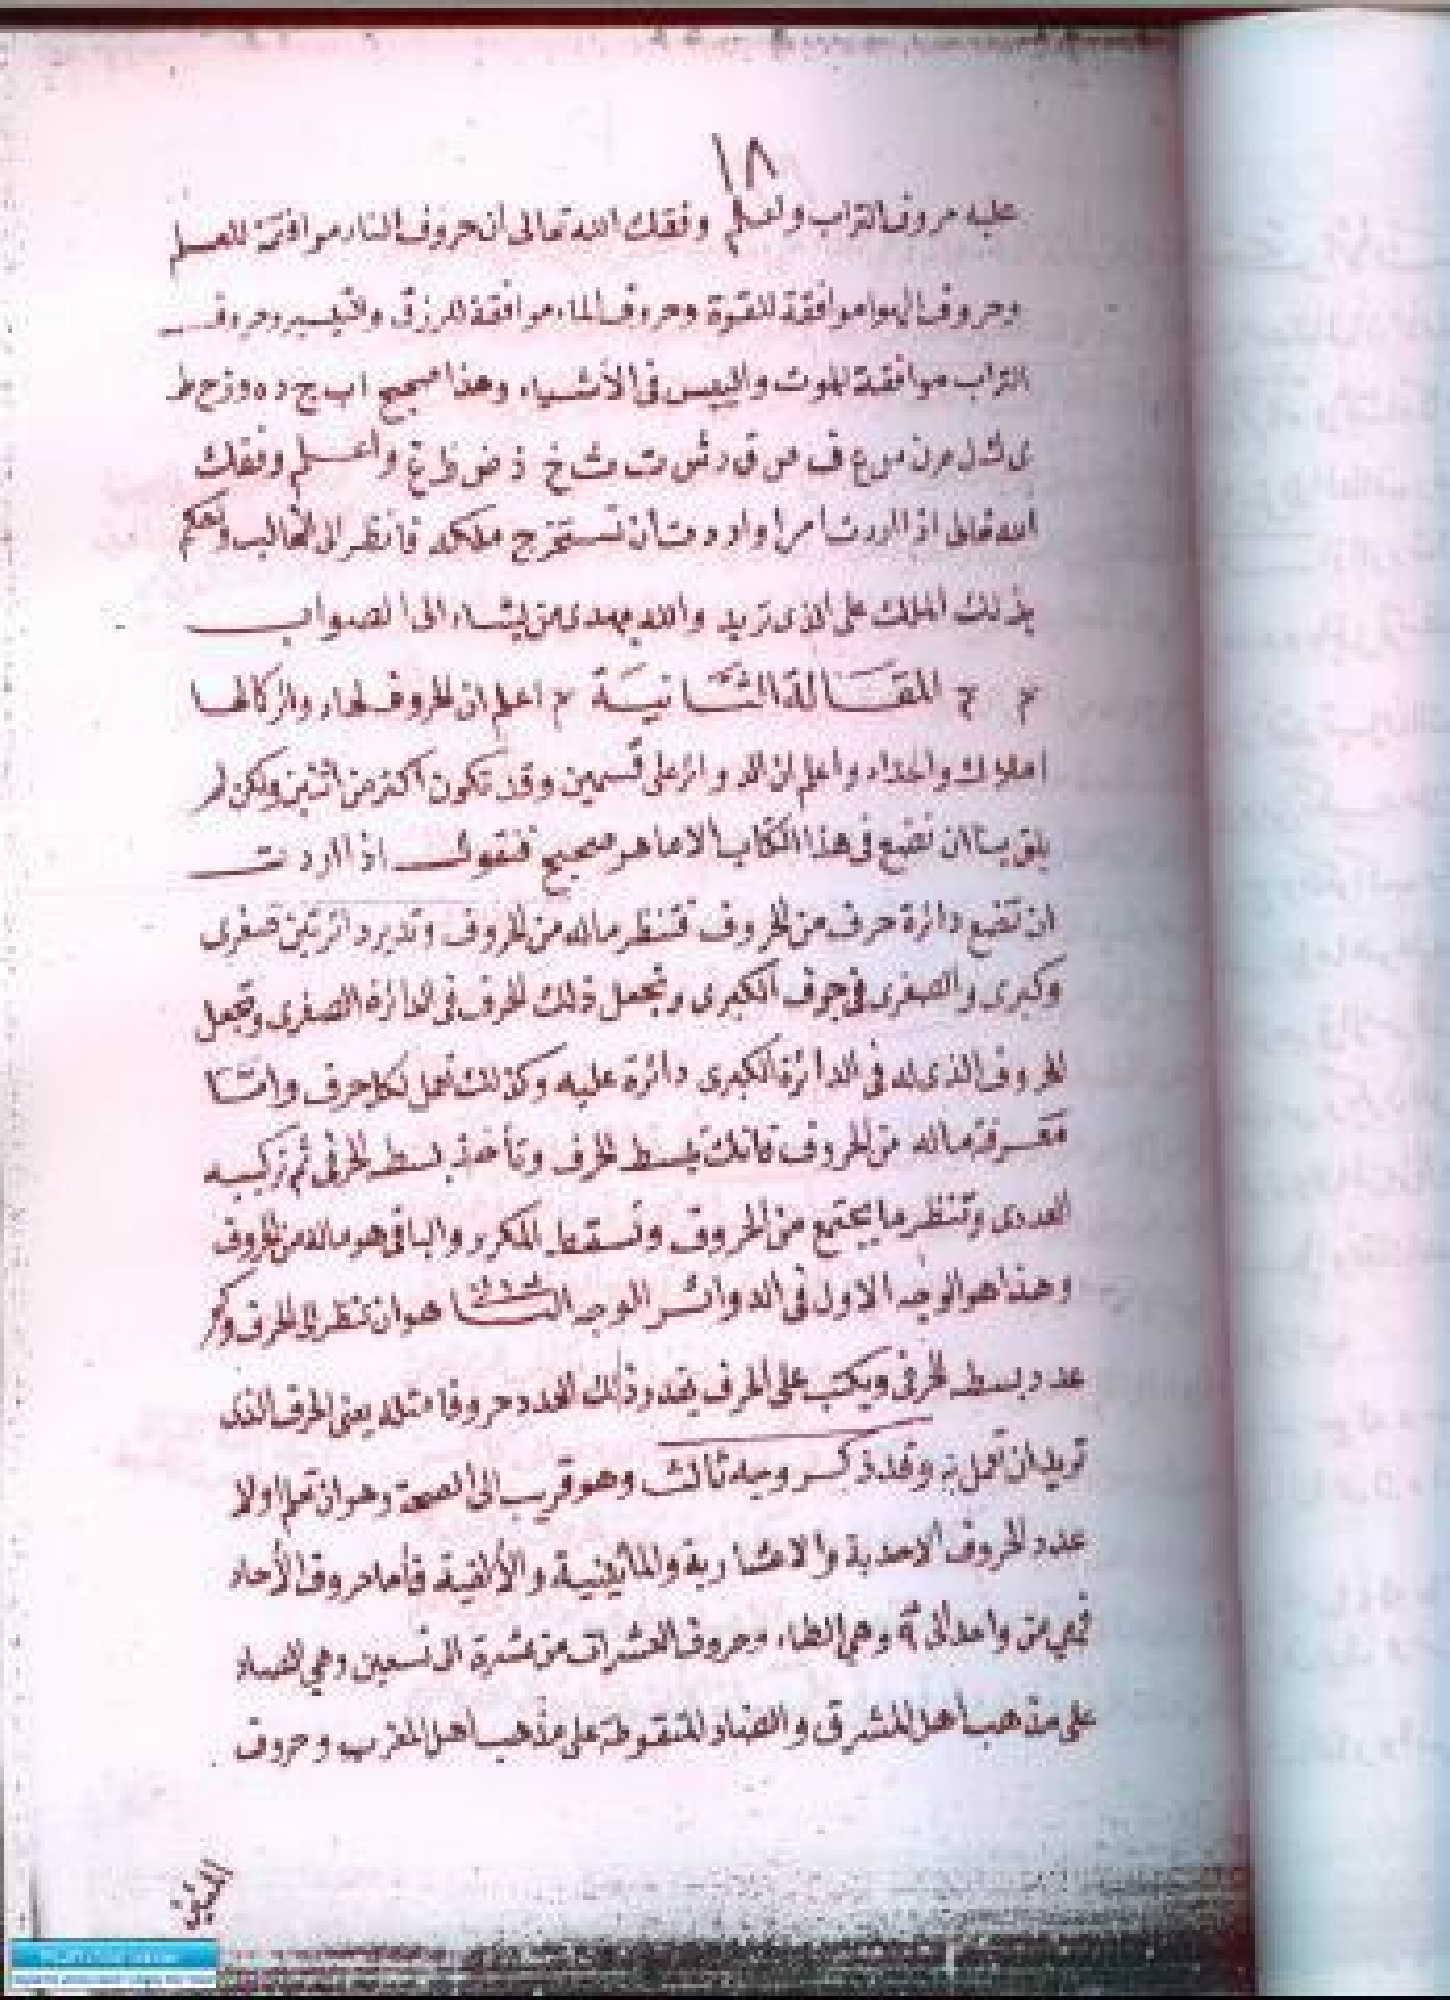 ١٨
عليه حروف التراب واعلم وفقك الله تعالى أن حروف النار موافقة للعلم
وحروف الهوا موافقة للقوة وحروف الماء موافقة للرزق والتيسير وحروف
التراب موافقة للموت واليبس في الأشياء وهذا صحيح اب ج د ه و ز ح ط
ى ك ل م ن س ع ف ص ق ر ش ت ث خ ذ ض ظ غ واعلم وفقك
الله تعالى اذا اردت امرا واردت أن تستخرج ملكه فانظر الى الغالب وتحكم
بذلك الملك على الذى تريد والله يهدى من يشاء الى الصواب
المقالة الثانية اعلم ان الحروف لها دوائر كالها
املاك واعلم ان الدوائر على قسمين وقد تكون أكثر من اثنين ولكن لم
يلق بنا ان نضع في هذا الكتاب الا ما هو صحيح فنقول اذا اردت
ان تضع دائرة حرف من الحروف فتنظر ماله من الحروف وتدير دائرتين صغرى
وكبرى والصغرى في جوف الكبرى وتجعل ذلك الحرف في الدائرة الصغرى وتجعل
الحروف الذى له في الدائرة الكبرى دائرة عليه وكذلك تعمل لكل حرف وامّا
معرفة ماله من الحروف فانك تبسط الحرف وتأخذ بسطه الحرفى ثم تركيبه
العددى وتنظر ما يجتمع من الحروف وتسقط المكرر والباقى هو ماله من الحروف
وهذا هو الوجه الاول في الدوائر الوجه الثانى هو ان تنظر الى الحرف وكم
عدد بسطه الحرفى ويكتب على الحرف بقدر ذلك العدد حروفا مثله يعنى الحرف الذى
تريد ان تعمل به وقد ذكر وجه ثالث وهو قريب الى الصحة وهو ان تعلم اولا
عدد الحروف الاحدية والاعشارية والمائينية والألفية فأما حروف الأحاد
فهي من واحد الى ٩ وهي الطاء وحروف العشرات من عشرة الى تسعين وهي الصاد
على مذهب أهل المشرق والضاد المنقوطة على مذهب أهل المغرب وحروف
المئين